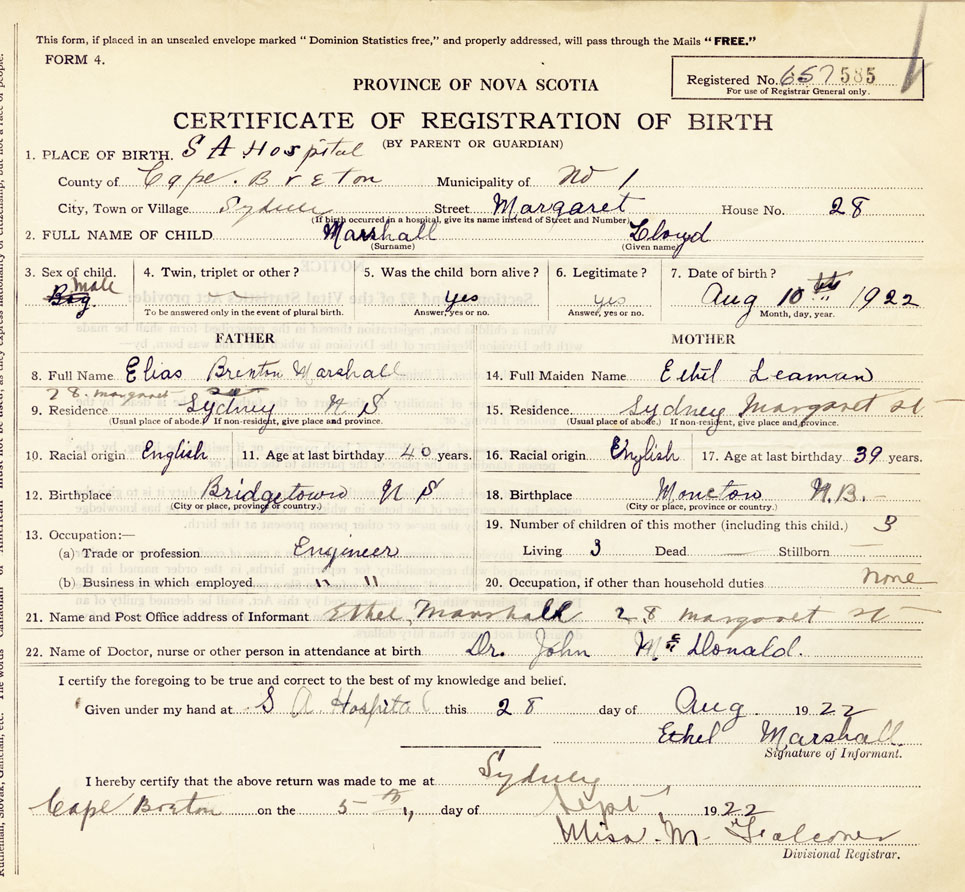 This form, if placed in an unsealed envelope marked "Dominion Statistics free," and properly addressed, will pass through the Mails "FREE."
FORM 4.
Registered No. 657585
For use of Registrar General only.
PROVINCE OF NOVA SCOTIA
CERTIFICATE OF REGISTRATION OF BIRTH
(BY PARENT OR GUARDIAN)
1. PLACE OF BIRTH. S A Hospital
County of Cape Breton Municipality of No 1
City, Town or Village Sydney Street Margaret House No. 28
(If birth occurred in a hospital, give its name instead of Street and Number)
2. FULL NAME OF CHILD Marshall Lloyd
(Surname) (Given name)
3. Sex of child. 4. Twin, triplet or other? 5. Was the child born alive? 6. Legitimate? 7. Date of birth?
Male
Boy. yes yes Aug 10th 1922
To be answered only in the event of plural birth. Answer, yes or no. Answer, yes or no. Month, day, year.
FATHER MOTHER
8. Full Name Elias Brenton Marshall 14. Full Maiden Name Ethel Leaman
28. margaret
9. Residence Sydney N S 15. Residence. Sydney Margaret st
(Usual place of abode.) If non-resident, give place and province. (Usual place of abode.) If non-resident, give place and province.
10. Racial origin English 11. Age at last birthday 40 years. 16. Racial origin English 17. Age at last birthday 39 years.
12. Birthplace Bridgetown N S 18. Birthplace Moncton N.B.
(City or place, province or country.) (City or place, province or country.)
13. Occupation:— 19. Number of children of this mother (including this child.) 3
(a) Trade or profession Engineer Living 3 Dead Stillborn
(b) Business in which employed " " 20. Occupation, if other than household duties none
21. Name and Post Office address of Informant Ethel Marshall 28 margaret st
22. Name of Doctor, nurse or other person in attendance at birth Dr. John McDonald.
I certify the foregoing to be true and correct to the best of my knowledge and belief.
Given under my hand at S A Hospital this 28 day of Aug 1922
Ethel Marshall.
Signature of Informant.
I hereby certify that the above return was made to me at Sydney
Cape Breton on the 5th day of Sept 1922
Miss. M. Falconer
Divisional Registrar.